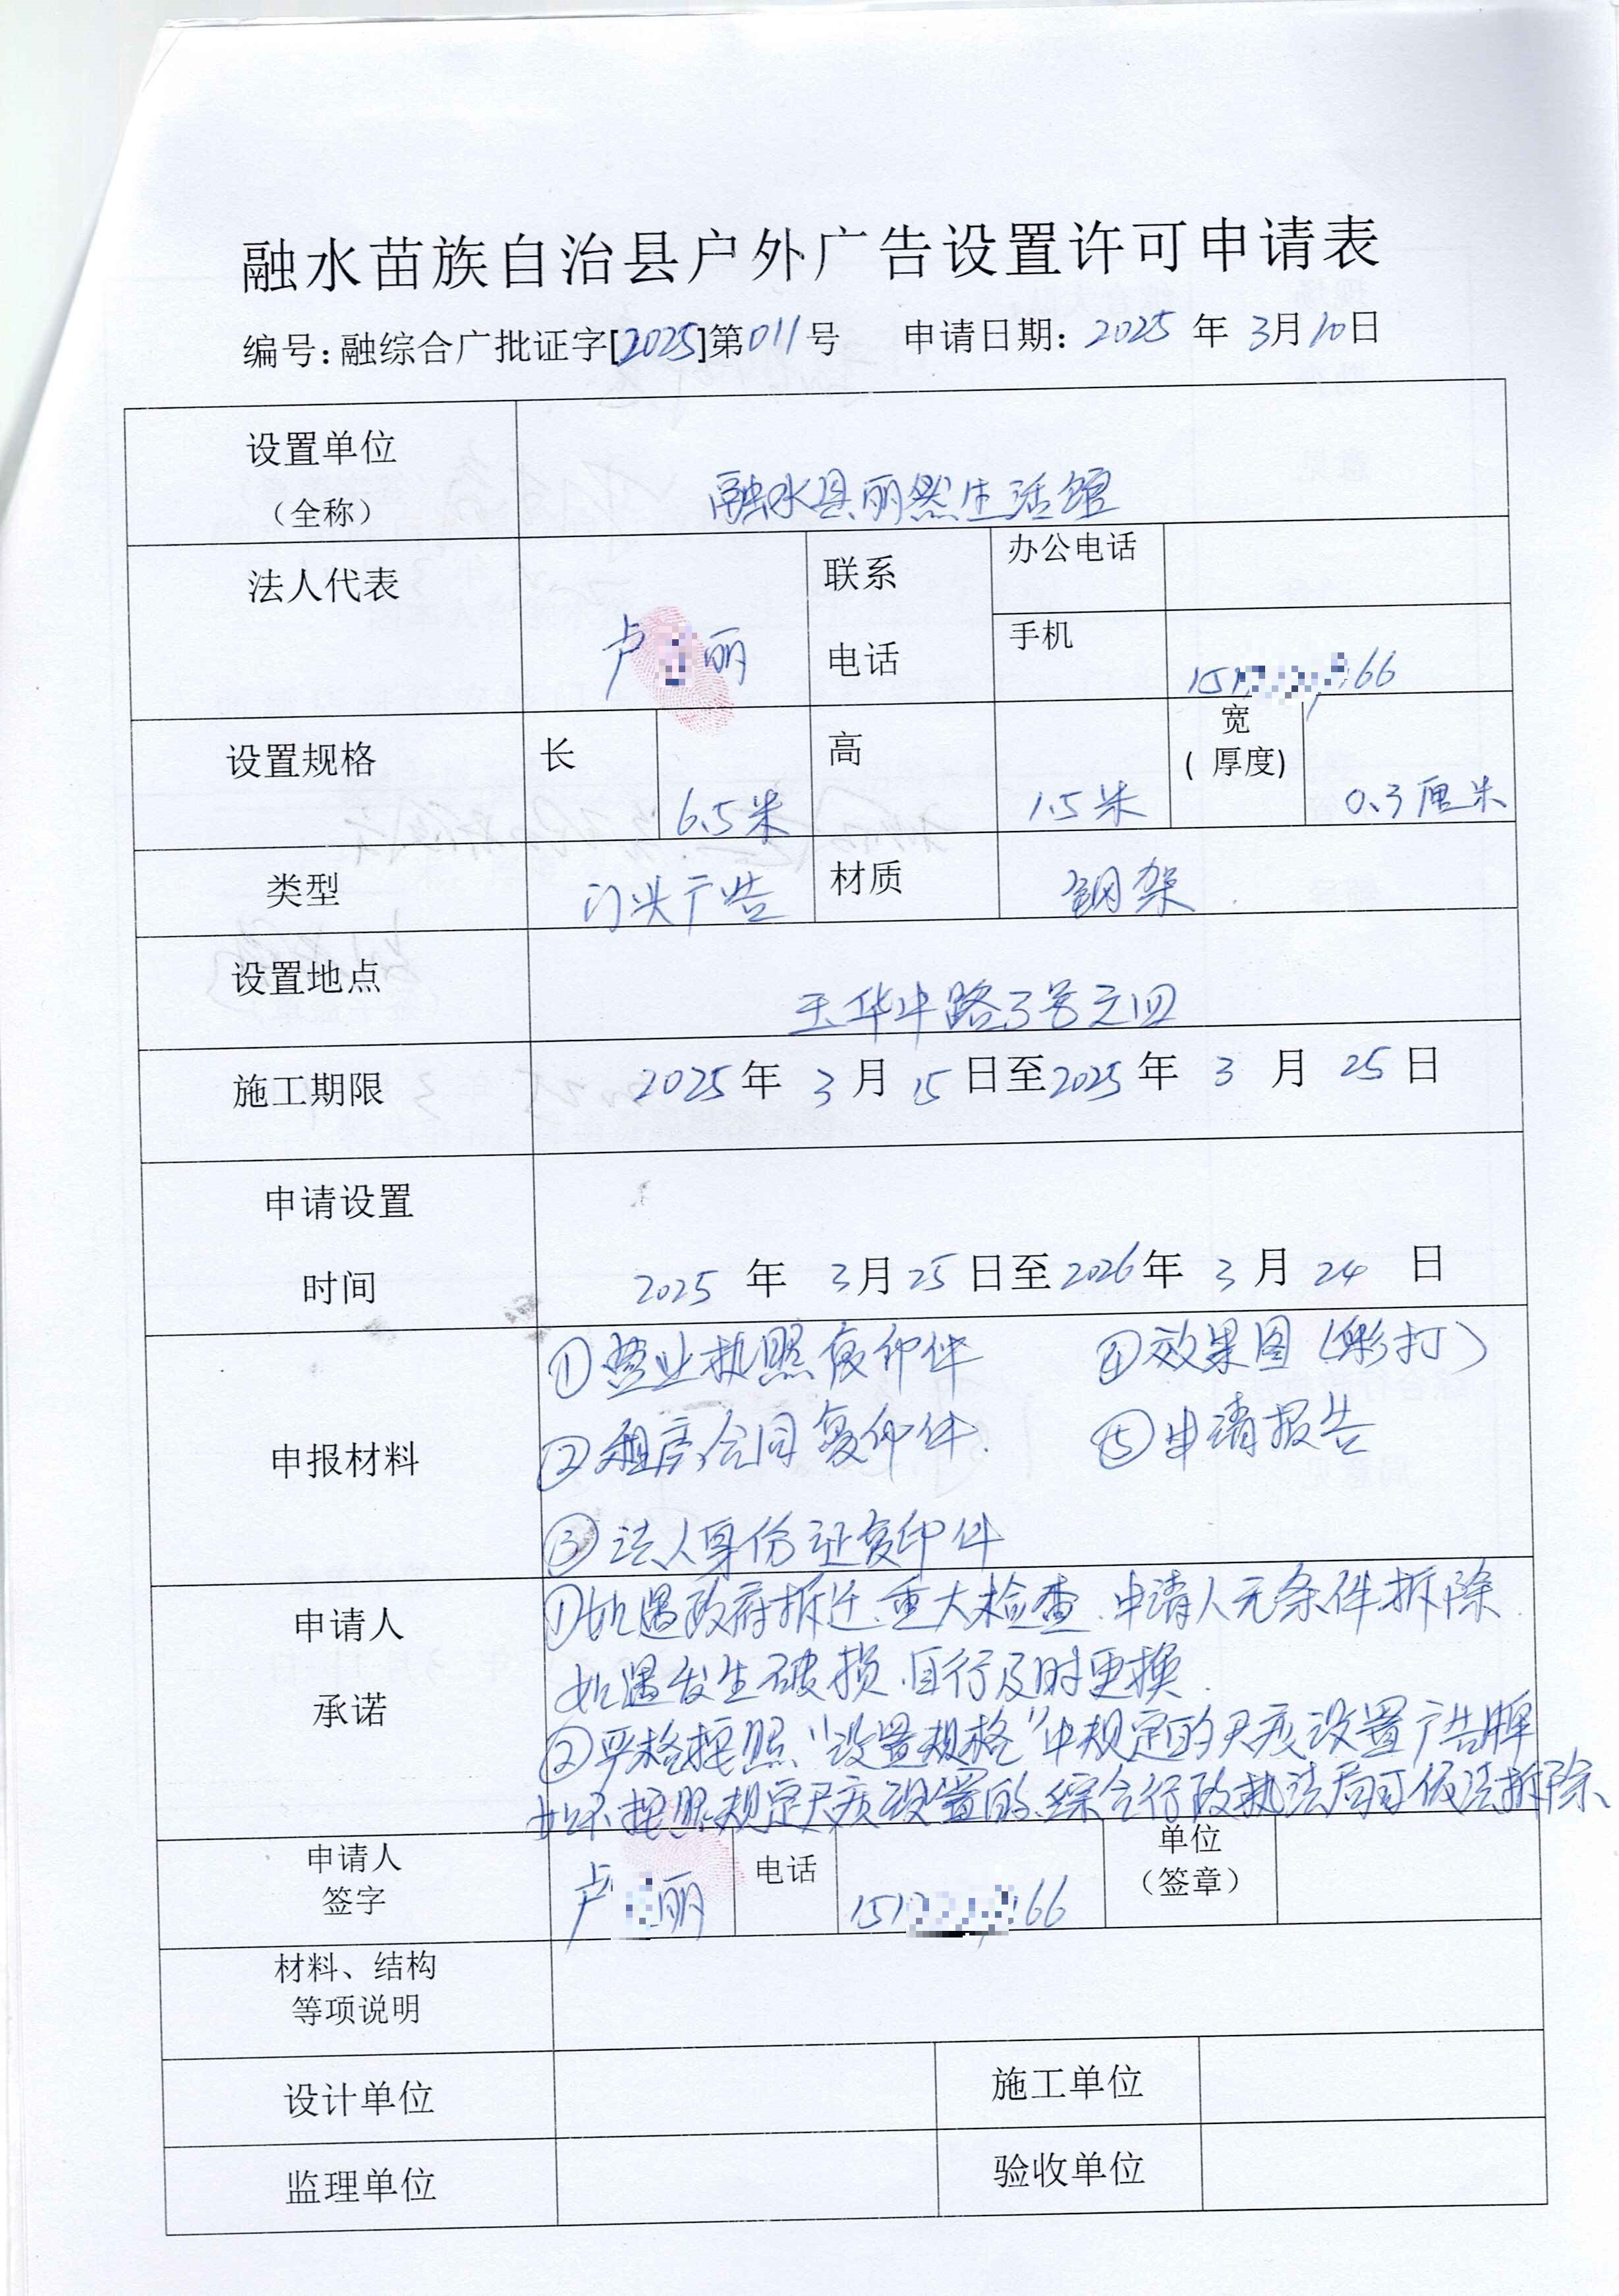 融水苗族自治县户外广告设置许可申请表
编号:融综合广批证字[2025]第011号 申请日期: 2025 年 3月10日
设置单位
(全称)
融水县丽然生活馆
法人代表
卢 丽
联系
电话
办公电话
手机
151 66
设置规格
长
6.5米
高
1.5米
宽
( 厚度)
0.3厘米
类型
门头广告
材质
钢架
设置地点
玉华中路3号之四
施工期限
2025年 3月 15日至2025年 3月 25日
申请设置
时间
2025 年 3月25日至2026年 3月 24 日
申报材料
①营业执照复印件 ④效果图(彩打)
②租房合同复印件. ⑤申请报告
③法人身份证复印件
申请人
承诺
①如遇政府拆迁、重大检查、申请人无条件拆除.
如遇发生破损、自行及时更换.
②严格按照“设置规格”中规定的尺度设置广告牌
如不按照规定尺度设置的、综合行政执法局可依法拆除、
申请人
签字
卢 丽
电话
151 66
单位
(签章)
材料、结构
等项说明
设计单位
施工单位
监理单位
验收单位